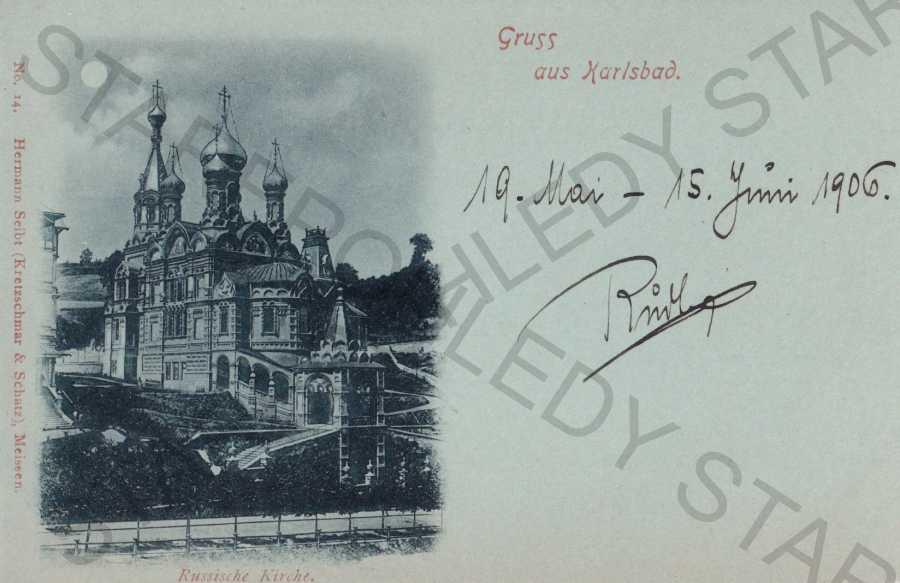 Gruss
aus Karlsbad.
19. Mai – 15. Juni 1906.
No. 14. Hermann Seibt (Kretzschmar & Schatz), Meissen.
Russische Kirche.
STARÉ POHLEDY STARÉ POHLEDY STARÉ
POHLEDY STARÉ